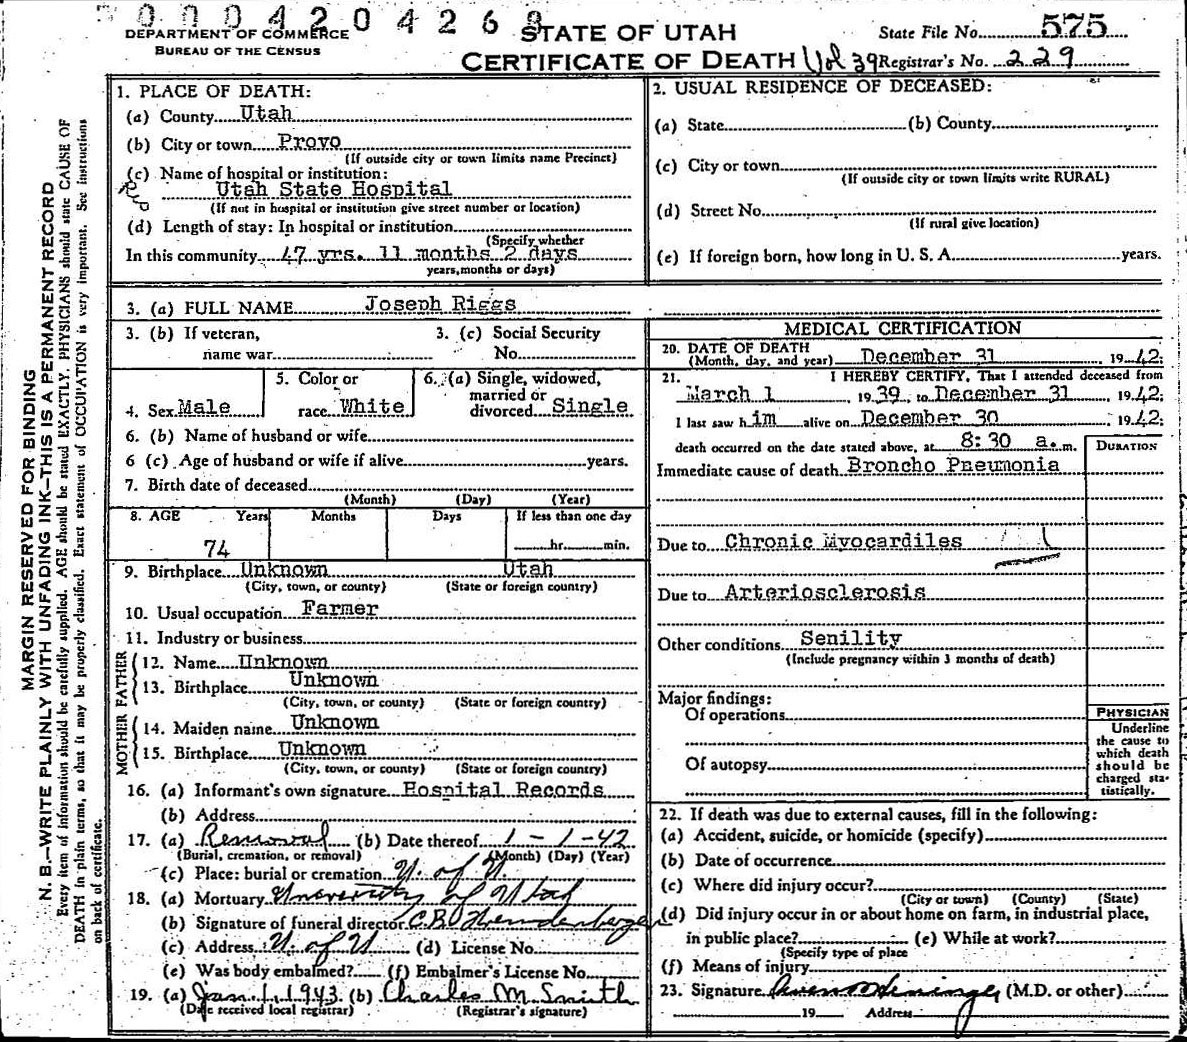 0004204268
DEPARTMENT OF COMMERCE
BUREAU OF THE CENSUS
STATE OF UTAH
CERTIFICATE OF DEATH
State File No. 575
Vol 39 Registrar's No. 229
MARGIN RESERVED FOR BINDING
N. B.—WRITE PLAINLY WITH UNFADING INK—THIS IS A PERMANENT RECORD
Every item of information should be carefully supplied. AGE should be stated EXACTLY. PHYSICIANS should state CAUSE OF
DEATH in plain terms, so that it may be properly classified. Exact statement of OCCUPATION is very important. See instructions
on back of certificate.
1. PLACE OF DEATH:
(a) County Utah
(b) City or town Provo
(If outside city or town limits name Precinct)
(c) Name of hospital or institution:
Utah State Hospital
(If not in hospital or institution give street number or location)
(d) Length of stay: In hospital or institution
(Specify whether
In this community 47 yrs. 11 months 2 days
years, months or days)
2. USUAL RESIDENCE OF DECEASED:
(a) State (b) County
(c) City or town
(If outside city or town limits write RURAL)
(d) Street No.
(If rural give location)
(e) If foreign born, how long in U. S. A. years.
3. (a) FULL NAME Joseph Riggs
3. (b) If veteran, 3. (c) Social Security
name war No.
4. Sex Male
5. Color or
race White
6. (a) Single, widowed,
married or
divorced Single
6. (b) Name of husband or wife
6 (c) Age of husband or wife if alive years.
7. Birth date of deceased
(Month) (Day) (Year)
8. AGE Years Months Days If less than one day
74 hr. min.
9. Birthplace Unknown Utah
(City, town, or county) (State or foreign country)
10. Usual occupation Farmer
11. Industry or business
FATHER
12. Name Unknown
13. Birthplace Unknown
(City, town, or county) (State or foreign country)
MOTHER
14. Maiden name Unknown
15. Birthplace Unknown
(City, town, or county) (State or foreign country)
16. (a) Informant's own signature Hospital Records
(b) Address
17. (a) Removal (b) Date thereof 1-1-42
(Burial, cremation, or removal) (Month) (Day) (Year)
(c) Place: burial or cremation U. of U.
18. (a) Mortuary University of Utah
(b) Signature of funeral director C.B.
(c) Address U. of U (d) License No.
(e) Was body embalmed? (f) Embalmer's License No.
19. (a) Jan. 1, 1943 (b) Charles M. Smith
(Date received local registrar) (Registrar's signature)
MEDICAL CERTIFICATION
20. DATE OF DEATH
(Month, day, and year) December 31 1942;
21. I HEREBY CERTIFY, That I attended deceased from
March 1 1939, to December 31 1942;
I last saw him alive on December 30 1942;
death occurred on the date stated above, at 8:30 a.m.
DURATION
Immediate cause of death Broncho Pneumonia
Due to Chronic Myocardiles
Due to Arteriosclerosis
Other conditions Senility
(Include pregnancy within 3 months of death)
Major findings:
Of operations
Of autopsy
PHYSICIAN
Underline
the cause to
which death
should be
charged sta-
tistically.
22. If death was due to external causes, fill in the following:
(a) Accident, suicide, or homicide (specify)
(b) Date of occurrence
(c) Where did injury occur?
(City or town) (County) (State)
(d) Did injury occur in or about home on farm, in industrial place,
in public place? (e) While at work?
(Specify type of place
(f) Means of injury
23. Signature (M.D. or other)
19 Address